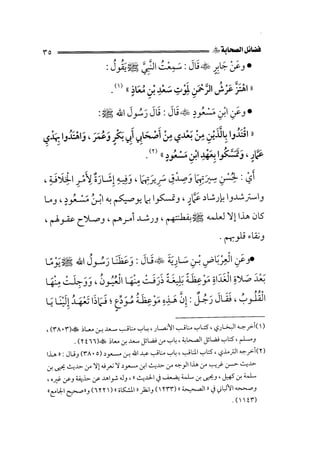 فضائل الصحابة ٣٥
• وعَنْ جَابِرٍ ﷺ قَالَ : سَمِعْتُ النَّبِيَّ ﷺ يَقُولُ :
« اهْتَزَّ عَرْشُ الرَّحْمَنِ لِمَوْتِ سَعْدِ بْنِ مُعَاذٍ » (١).
• وعَنِ ابْنِ مَسْعُودٍ ﷺ قَالَ : قَالَ رَسُولُ الله ﷺ :
« اقْتَدُوا بِالَّذَيْنِ مِنْ بَعْدِي مِنْ أَصْحَابِي أَبِي بَكْرٍ وَعُمَرَ ، وَاهْتَدُوا بِهَدْيِ
عَمَّارٍ ، وَتَمَسَّكُوا بِعَهْدِ ابْنِ مَسْعُودٍ » (٢).
أَيْ : لِحُسْنِ سِيرَتِهِمَا وَصِدْقِ سَرِيرَتِهِمَا ، وَفِيهِ إِشَارَةٌ لِأَمْرِ الخِلَافَةِ ،
واسترشدوا بإرشاد عَمَّارٍ ، وتمسكوا بما يوصيكم به ابْنُ مَسْعُودٍ ، وما
كان هذا إلا لعلمه ﷺ بفطنتهم ، ورشد أمرهم ، وصلاح عقولهم ،
ونقاء قلوبهم .
• وعَنِ الْعِرْبَاضِ بْنِ سَارِيَةَ ﷺ قَالَ : وَعَظَنَا رَسُولُ الله ﷺ يَوْمًا
بَعْدَ صَلاةِ الْغَدَاةِ مَوْعِظَةً بَلِيغَةً ذَرَفَتْ مِنْهَا الْعُيُونُ ، وَوَجِلَتْ مِنْهَا
الْقُلُوبُ ، فَقَالَ رَجُلٌ : إِنَّ هَذِهِ مَوْعِظَةُ مُوَدِّعٍ ، فَمَاذَا تَعْهَدُ إِلَيْنَا يَا
(١) أخرجه البخاري ، كتاب مناقب الأنصار ، باب مناقب سعد بن معاذ (٣٨٠٣) ،
ومسلم ، كتاب فضائل الصحابة ، باب من فضائل سعد بن معاذ (٢٤٦٦) .
(٢) أخرجه الترمذي ، كتاب المناقب ، باب مناقب عبد الله بن مسعود (٣٨٠٥) وقال : « هذا
حديث حسن غريب من هذا الوجه من حديث ابن مسعود لا نعرفه إلا من حديث يحيى بن
سلمة بن كهيل ، ويحيى بن سلمة يضعف في الحديث » ، وله شواهد عن حذيفة وعن غيره ،
وصححه الألباني في « الصحيحة » (١٢٣٣) وانظر « المشكاة » (٦٢٢١) و« صحيح الجامع »
(١١٤٣) .